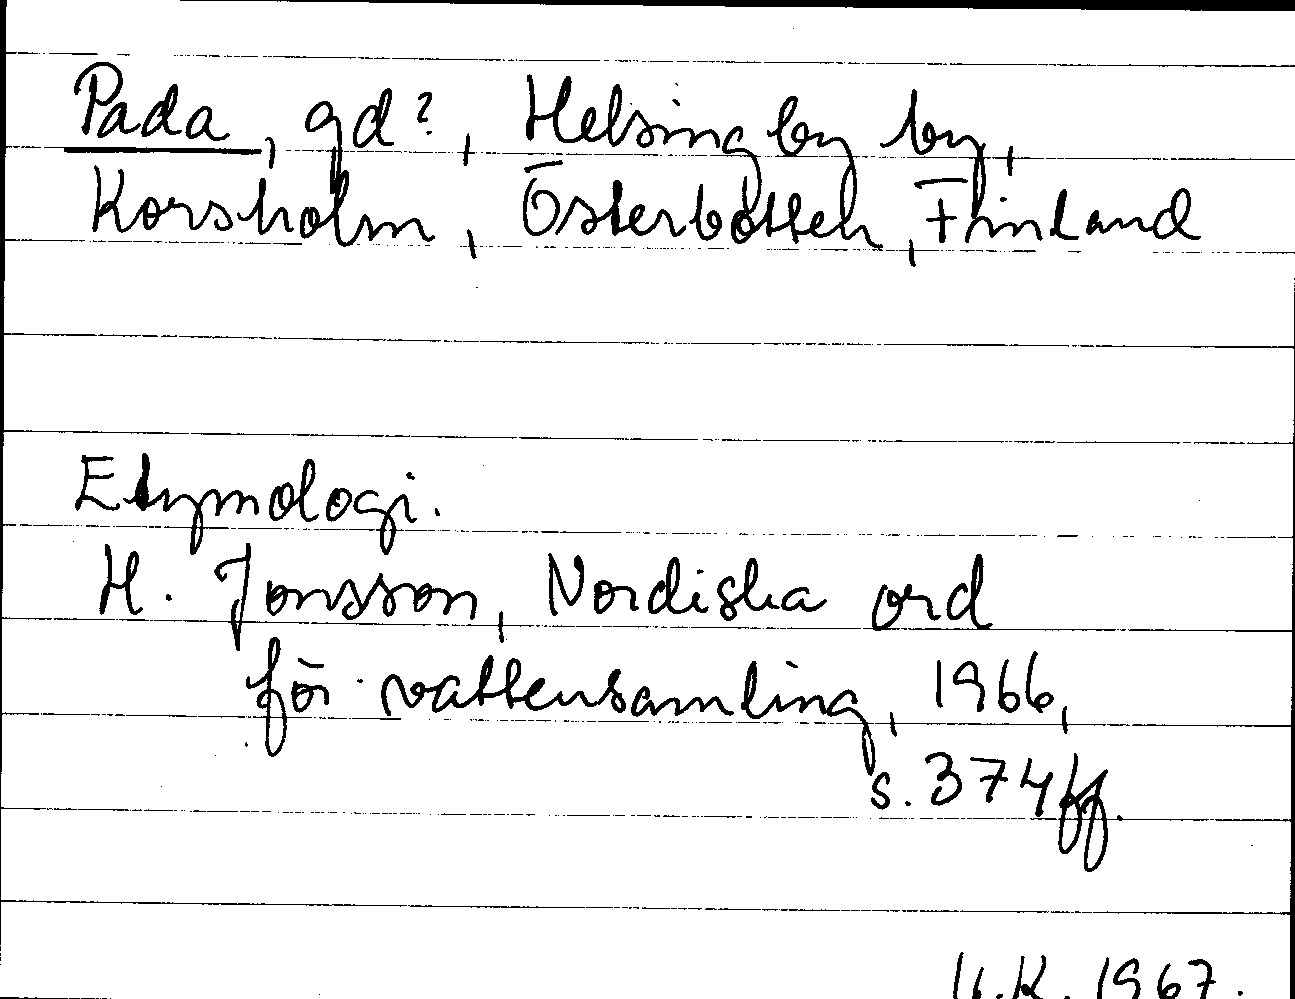 Pada, gd?, Helsingby by,
Korsholm, Österbotten, Finland
Etymologi.
H. Jonsson, Nordiska ord
för vattensamling, 1966,
s. 374 ff.
U.K. 1967.